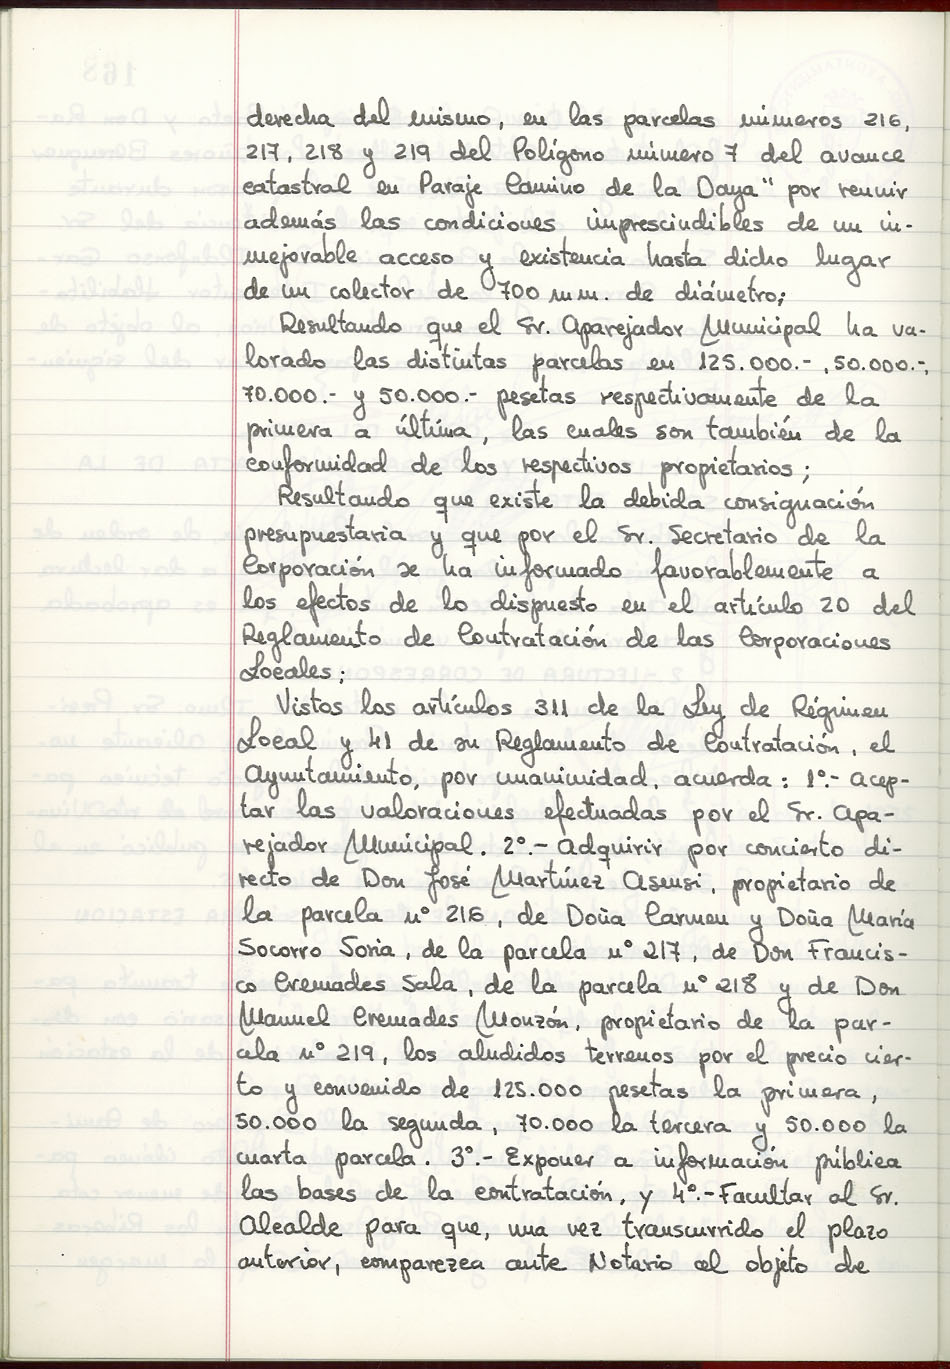 derecha del mismo, en las parcelas números 216,
217, 218 y 219 del Polígono número 7 del avance
catastral en Paraje Camino de la Daya" por reunir
además las condiciones imprescindibles de un in-
mejorable acceso y existencia hasta dicho lugar
de un colector de 700 m.m. de diámetro;
Resultando que el Sr. Aparejador Municipal ha va-
lorado las distintas parcelas en 125.000.-, 50.000.-,
70.000.- y 50.000.- pesetas respectivamente de la
primera a última, las cuales son también de la
conformidad de los respectivos propietarios;
Resultando que existe la debida consignación
presupuestaria y que por el Sr. Secretario de la
Corporación se ha informado favorablemente a
los efectos de lo dispuesto en el artículo 20 del
Reglamento de Contratación de las Corporaciones
Locales;
Vistos los artículos 311 de la Ley de Régimen
Local y 41 de su Reglamento de Contratación, el
Ayuntamiento, por unanimidad, acuerda: 1º.- Acep-
tar las valoraciones efectuadas por el Sr. Apa-
rejador Municipal. 2º.- Adquirir por concierto di-
recto de Don José Martínez Asensi, propietario de
la parcela nº 216, de Doña Carmen y Doña María
Socorro Soria, de la parcela nº 217, de Don Francis-
co Cremades Sala, de la parcela nº 218 y de Don
Manuel Cremades Monzón, propietario de la par-
cela nº 219, los aludidos terrenos por el precio cier-
to y convenido de 125.000 pesetas la primera,
50.000 la segunda, 70.000 la tercera y 50.000 la
cuarta parcela. 3º.- Exponer a información pública
las bases de la contratación, y 4º.- Facultar al Sr.
Alcalde para que, una vez transcurrido el plazo
anterior, comparezca ante Notario al objeto de